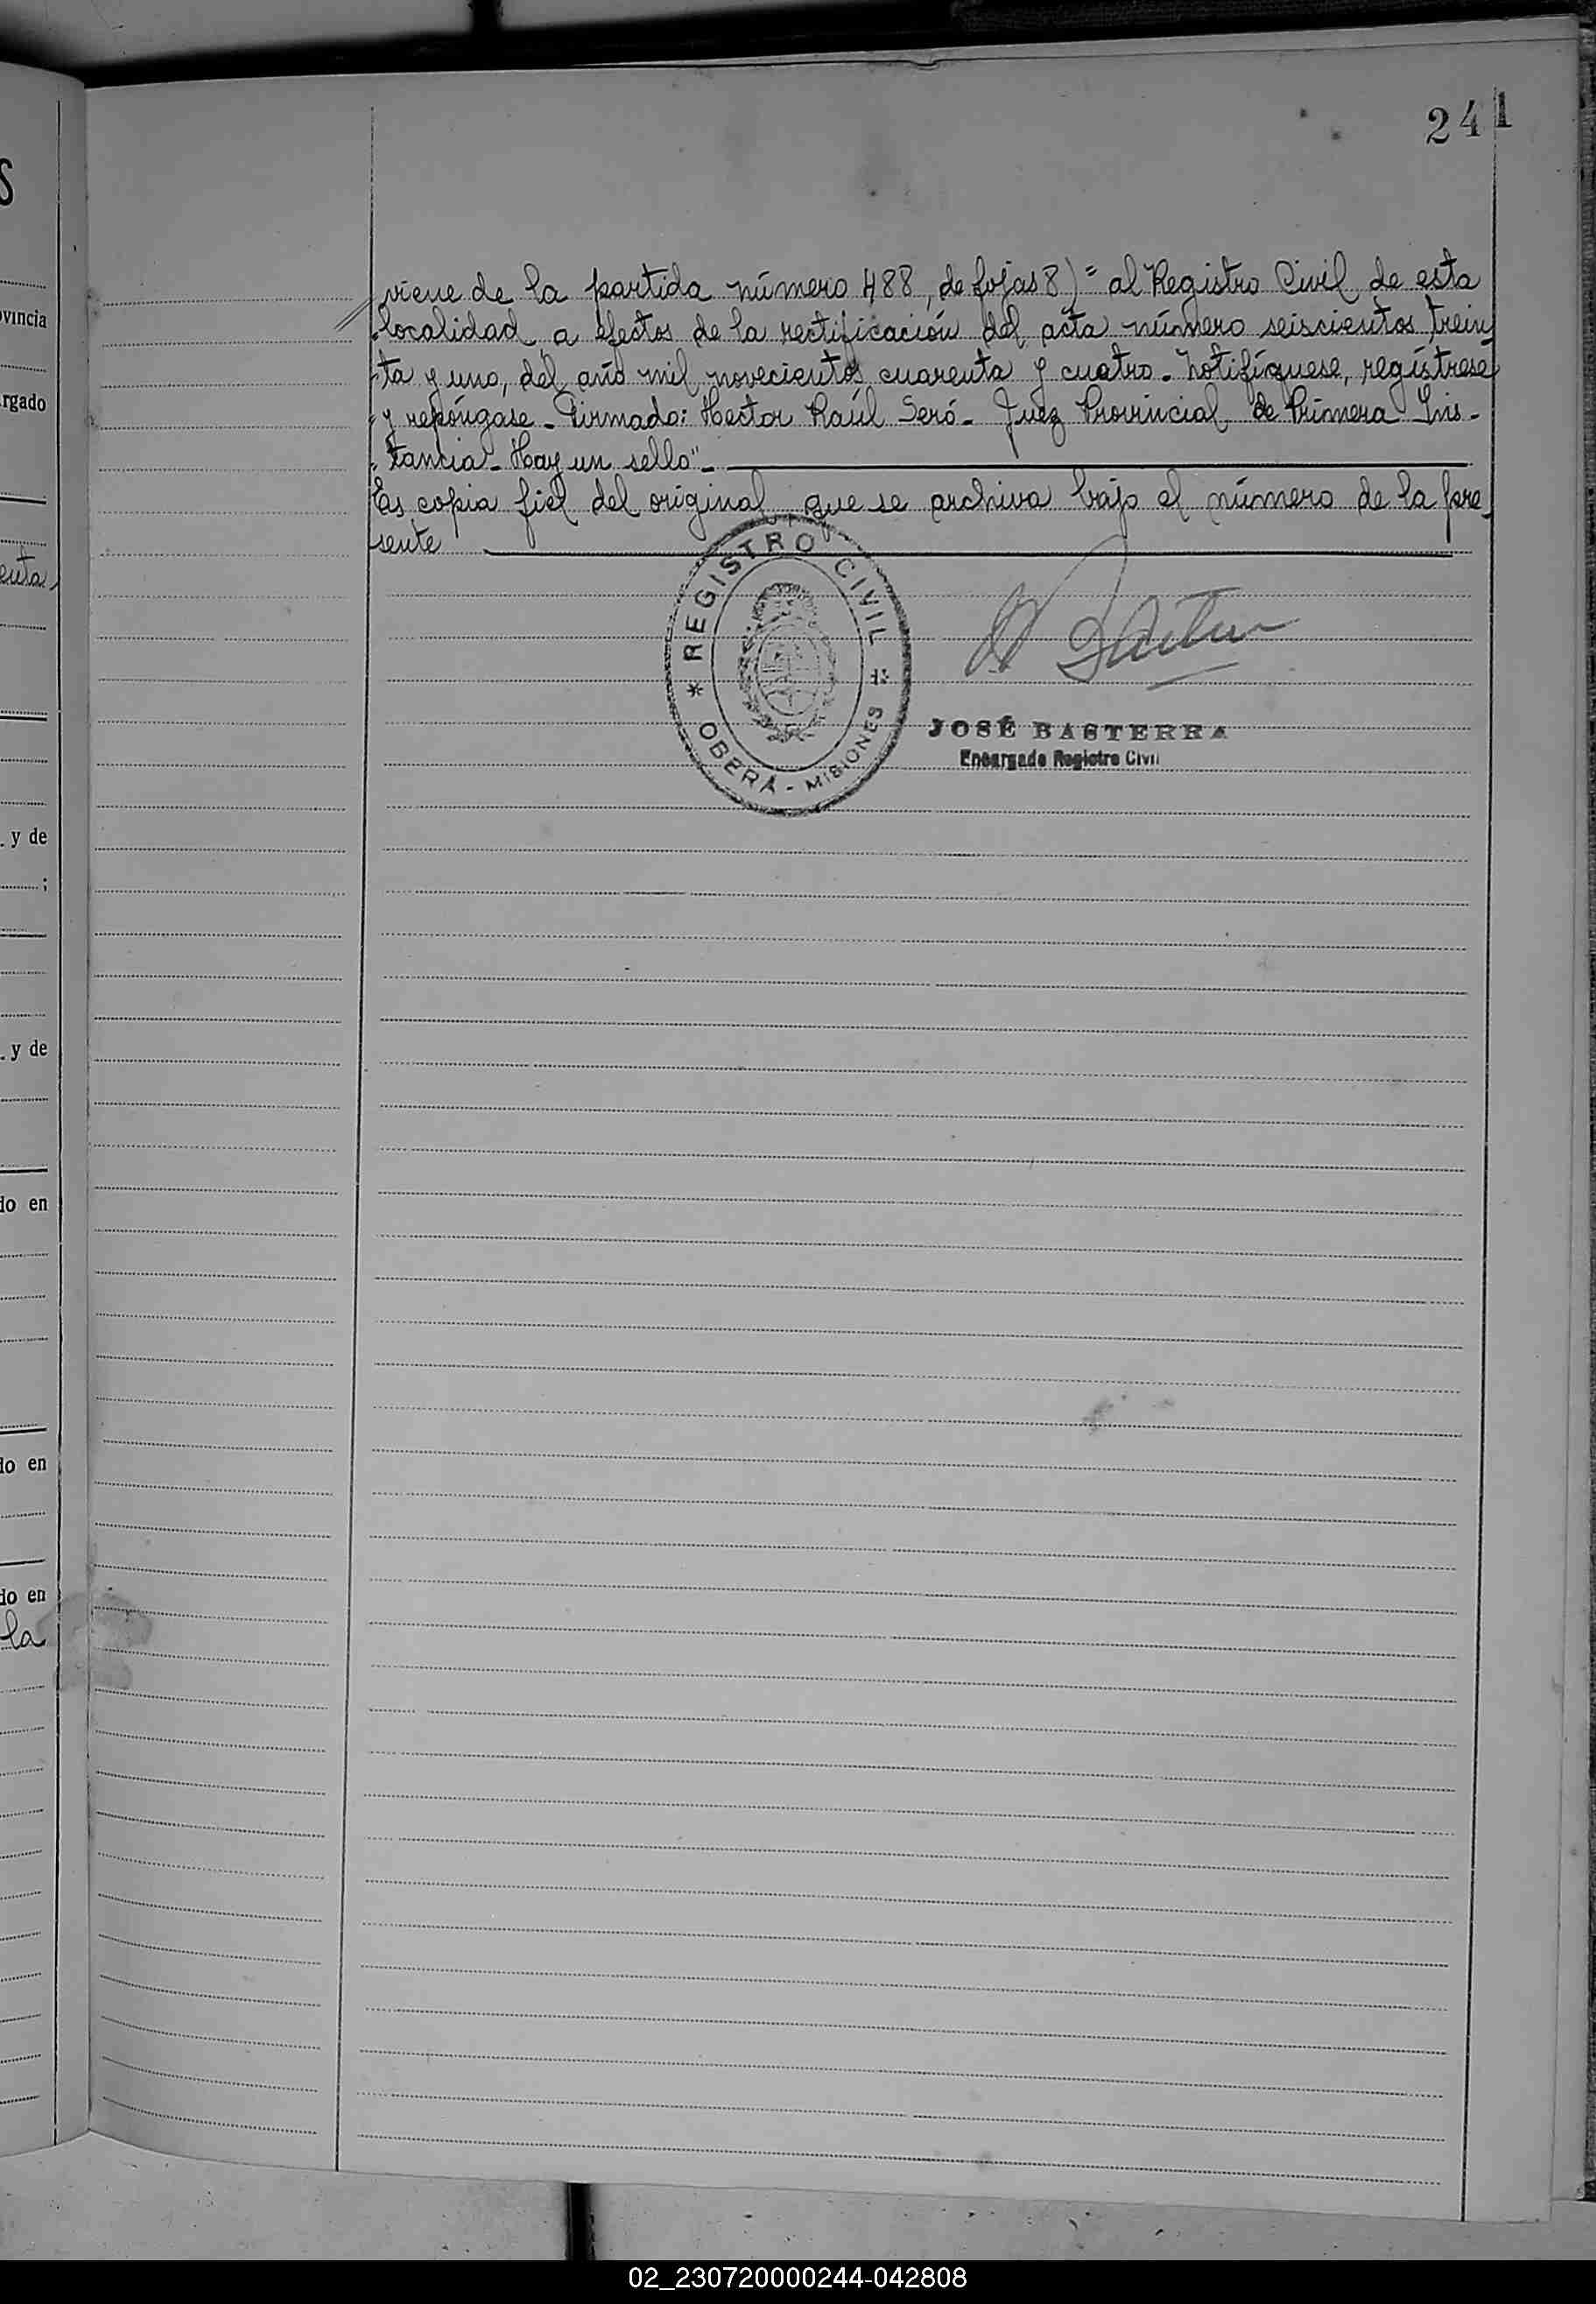 241
viene de la partida número 488, de fojas 8) "al Registro Civil de esta
"localidad, a efectos de la rectificación del acta número seiscientos trein
"ta y uno, del año mil novecientos cuarenta y cuatro. Notifíquese, regístrese
"y repóngase - Firmado: Hector Raúl Seró - Juez Provincial de Primera Ins-
"tancia - Hay un sello" -
Es copia fiel del original que se archiva bajo el número de la pre-
sente
REGISTRO CIVIL
OBERÁ - MISIONES
JOSÉ BASTERRA
Encargado Registro Civil
S
ovincia
rgado
enta
y de
;
y de
do en
do en
do en
la
02_230720000244-042808